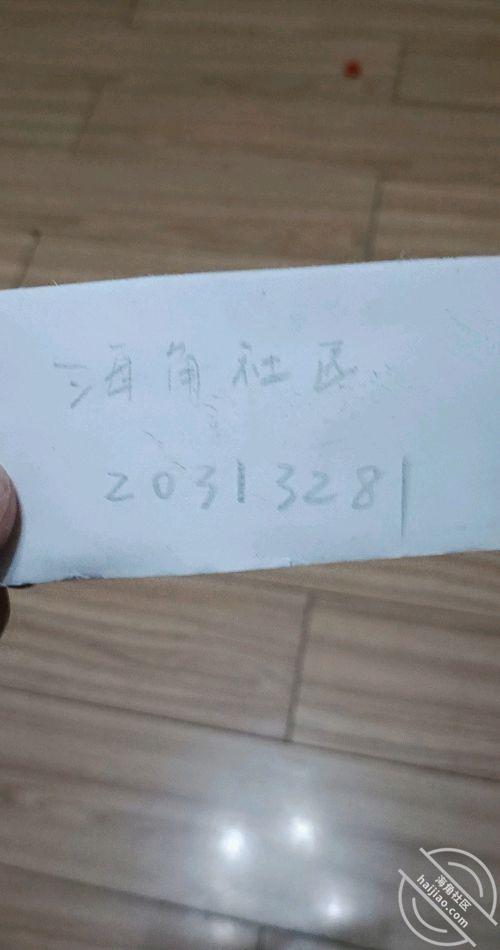 海角社区
20313281
海角社区
haijiao.com